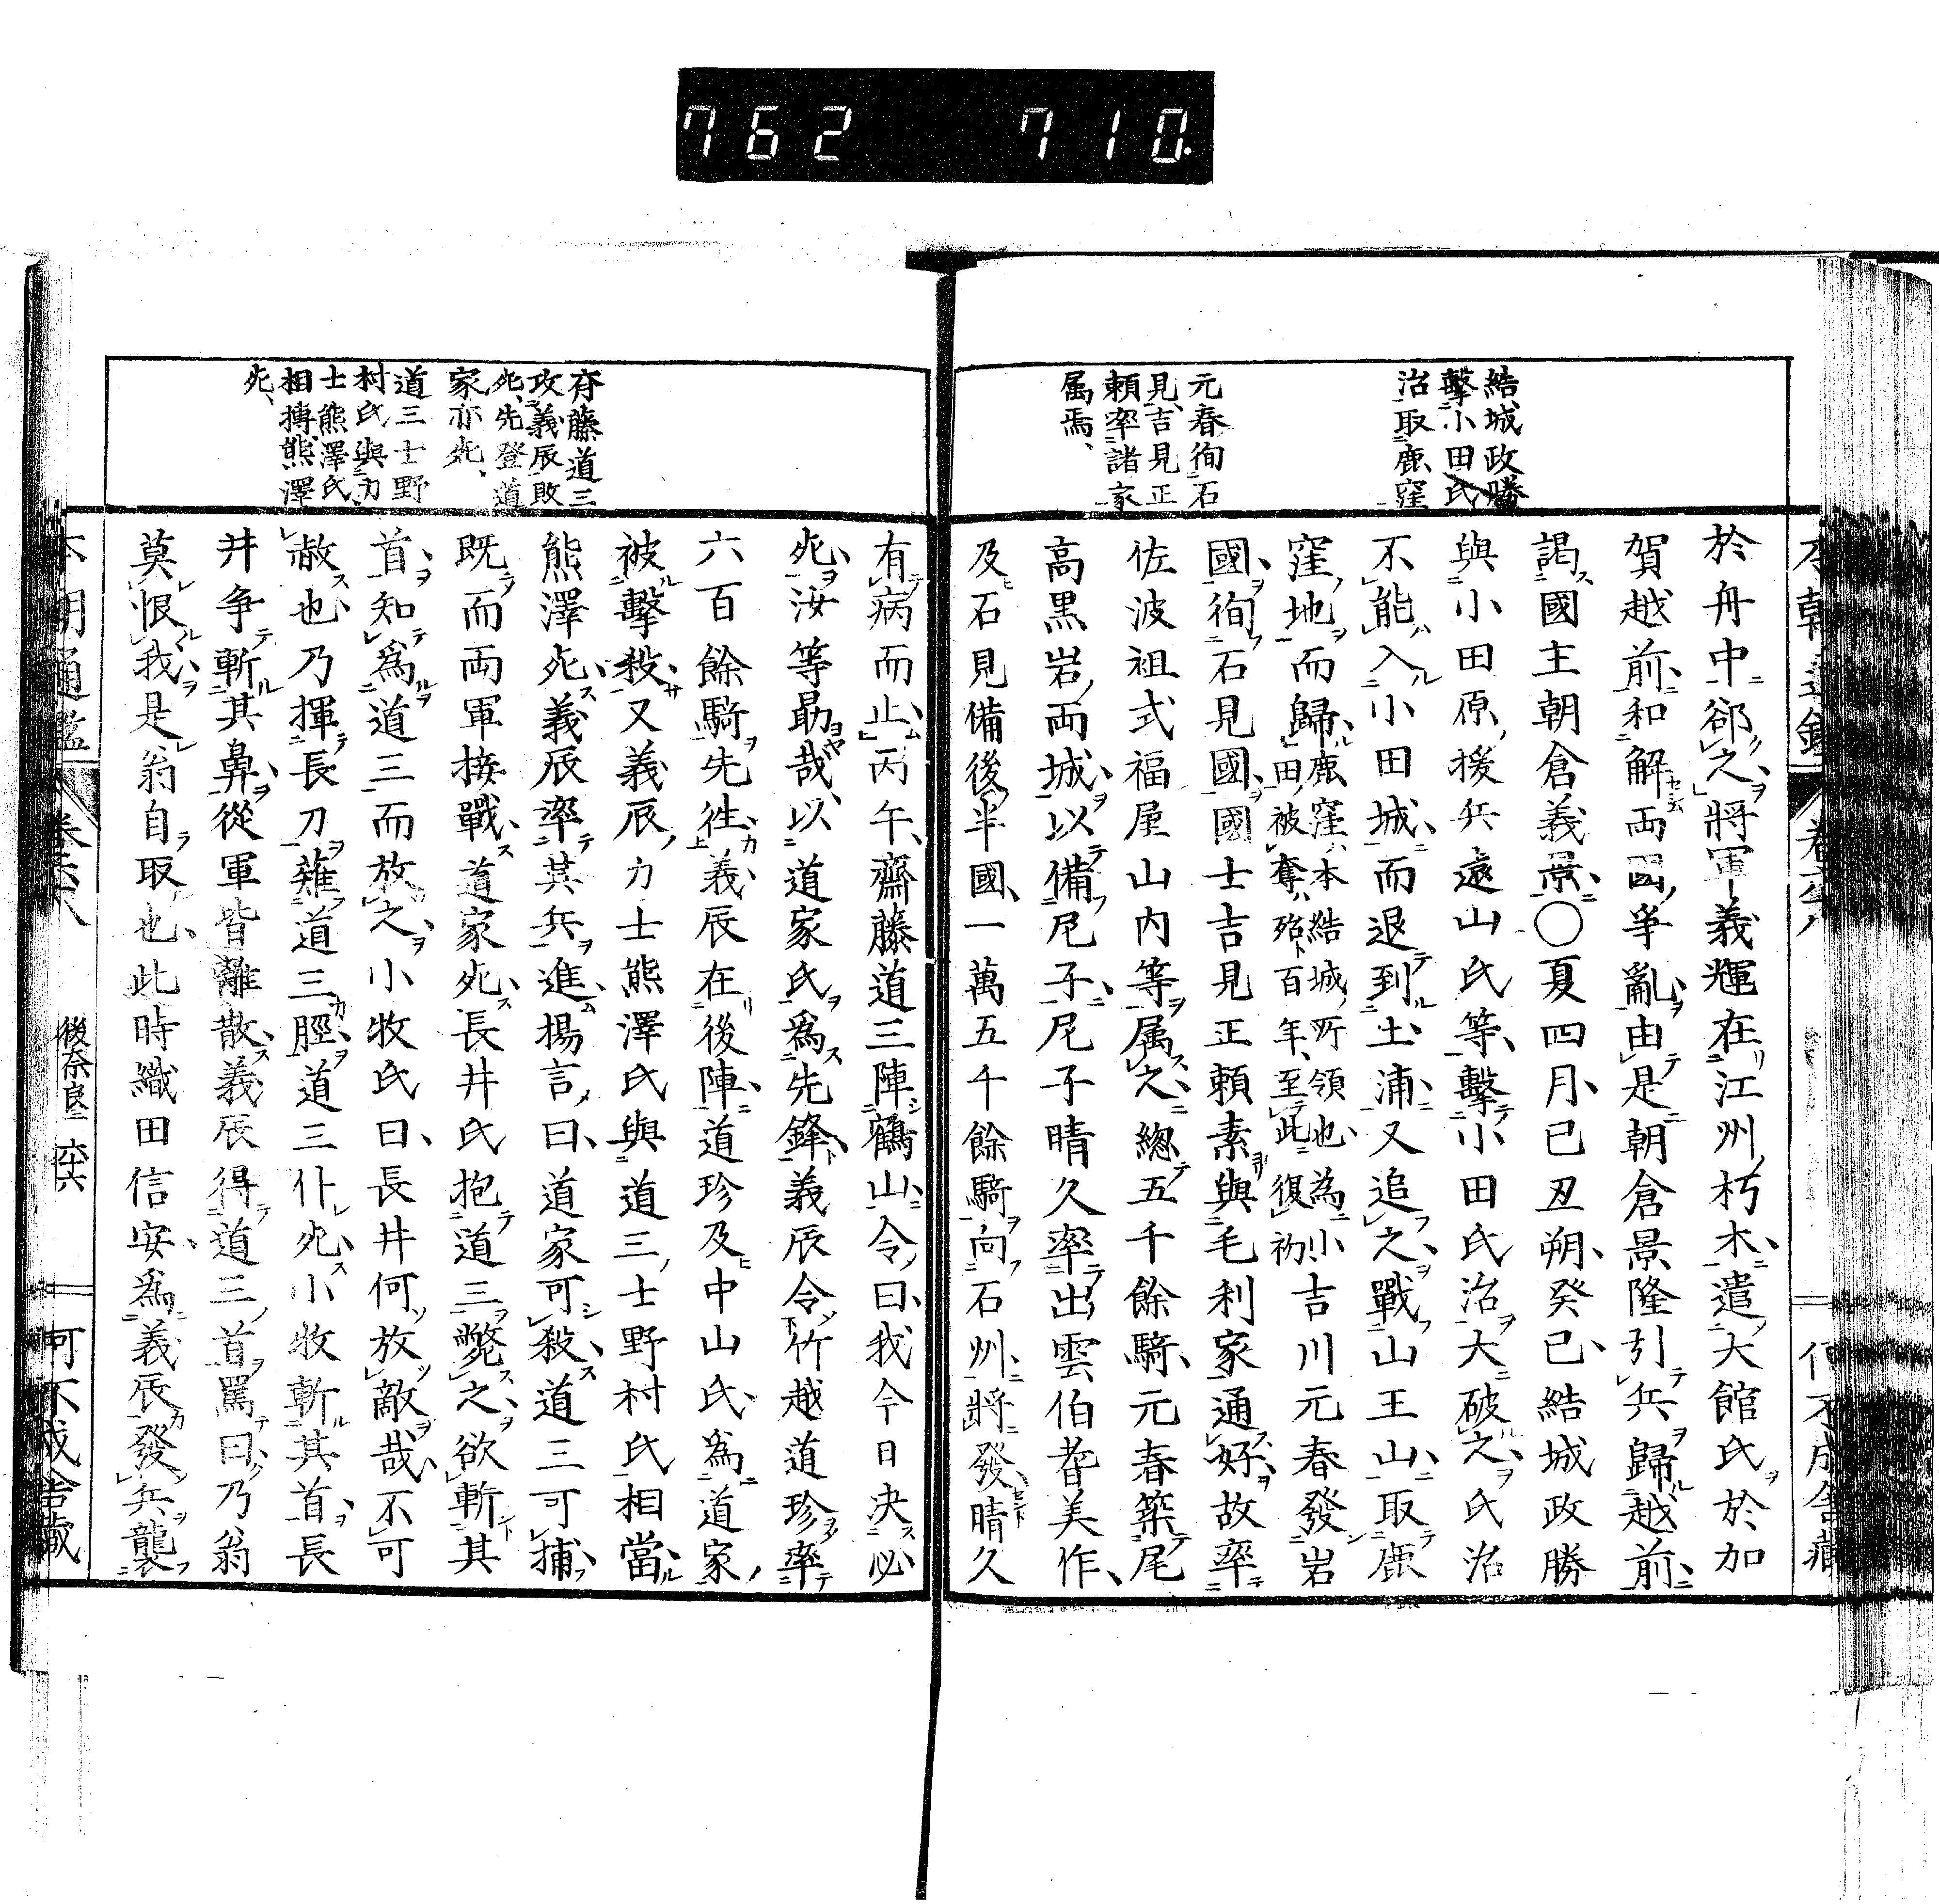 762 710
結城政勝
擊小田氏
治取鹿窪
元春徇石
見吉見正
頼率諸家
属焉
於舟中郤之將軍義輝在江州朽木遣大館氏於加
賀越前和解両國爭亂由是朝倉景隆引兵歸越前
謁國主朝倉義景〇夏四月己丑朔癸巳結城政勝
與小田原援兵遠山氏等擊小田氏治大破之氏治
不能入小田城而退到土浦又追之戰山王山取鹿
窪地而歸鹿窪本結城所領也為小田被奪殆百年至此復初吉川元春發岩
國徇石見國國士吉見正頼素與毛利家通好故率
佐波祖式福屋山内等属之總五千餘騎元春築尾
高黒岩両城以備尼子尼子晴久率出雲伯耆美作
及石見備後半國一萬五千餘騎向石州將發晴久
斉藤道三
攻義辰敗
死先登道
家亦死
道三士野
村氏與力
士熊澤氏
相搏熊澤
死
有病而止丙午齋藤道三陣鶴山令曰我今日决必
死汝等勗哉以道家氏爲先鋒義辰令竹越道珍率
六百餘騎先徃義辰在後陣道珍及中山氏為道家
被擊殺又義辰力士熊澤氏與道三士野村氏相當
熊澤死義辰率其兵進揚言曰道家可殺道三可捕
既而両軍接戰道家死長井氏抱道三斃之欲斬其
首知爲道三而放之小牧氏曰長井何放敵哉不可
赦也乃揮長刀薙道三脛道三仆死小牧斬其首長
井争斬其鼻從軍皆離散義辰得道三首罵曰乃翁
莫恨我是翁自取也此時織田信安爲義辰發兵襲
本朝通鑑
後奈良二
六十六
何不成舎藏